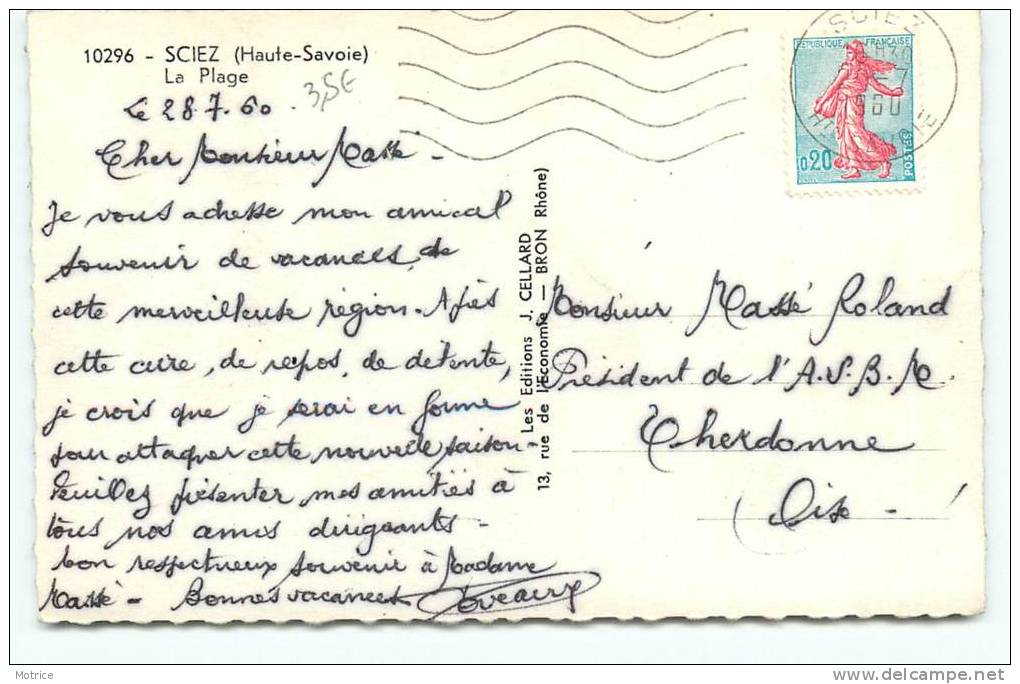 10296 - SCIEZ (Haute-Savoie)
La Plage
Le 28.7.60
3,5€
Cher Monsieur Massé -
Je vous adresse mon amical
souvenir de vacances, de
cette merveilleuse région. Après
cette cure, de repos, de détente,
je crois que je serai en forme
pour attaquer cette nouvelle saison -
Veuillez présenter mes amitiés à
tous nos amis dirigeants -
bon respectueux souvenir à Madame
Massé - Bonnes vacances
Les Editions J. CELLARD
13, rue de l'Economie — BRON Rhône)
SCIEZ
REPUBLIQUE FRANÇAISE
0,20
POSTES
Monsieur Massé Roland
Président de l'A.S.B.M.
Therdonne
Oise -
Motrice
www.delcampe.net